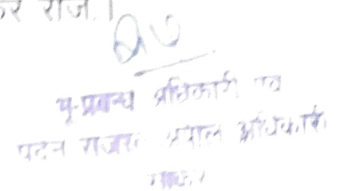 र राज.।
भू-प्रबन्ध अधिकारी एवं
पदेन राजस्व अपील अधिकारी